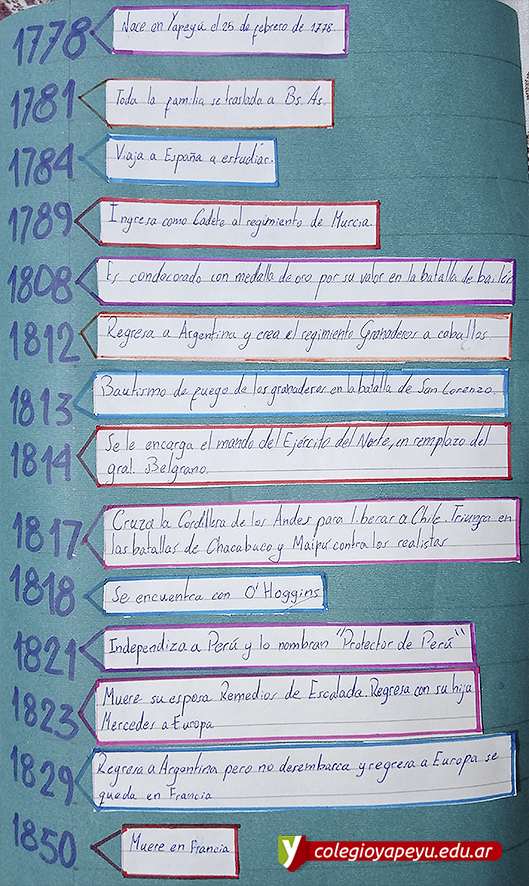 1778 Nace en Yapeyú el 25 de febrero de 1778
1781 Toda la familia se traslada a Bs. As.
1784 Viaja a España a estudiar.
1789 Ingresa como Cadete al regimiento de Murcia.
1808 Es condecorado con medalla de oro por su valor en la batalla de bailén
1812 Regresa a Argentina y crea el regimiento Granaderos a caballos.
1813 Bautismo de fuego de los granaderos en la batalla de San Lorenzo.
1814 Se le encarga el mando del Ejército del Norte, en remplazo del
gral. Belgrano.
1817 Cruza la Cordillera de los Andes para liberar a Chile. Triunfa en
las batallas de Chacabuco y Maipú contra los realistas
1818 Se encuentra con O'Hoggins
1821 Independiza a Perú y lo nombran "Protector de Perú"
1823 Muere su esposa Remedios de Escalada. Regresa con su hija
Mercedes a Europa
1829 Regresa a Argentina pero no desembarca y regresa a Europa se
queda en Francia
1850 Muere en Francia
colegioyapeyu.edu.ar